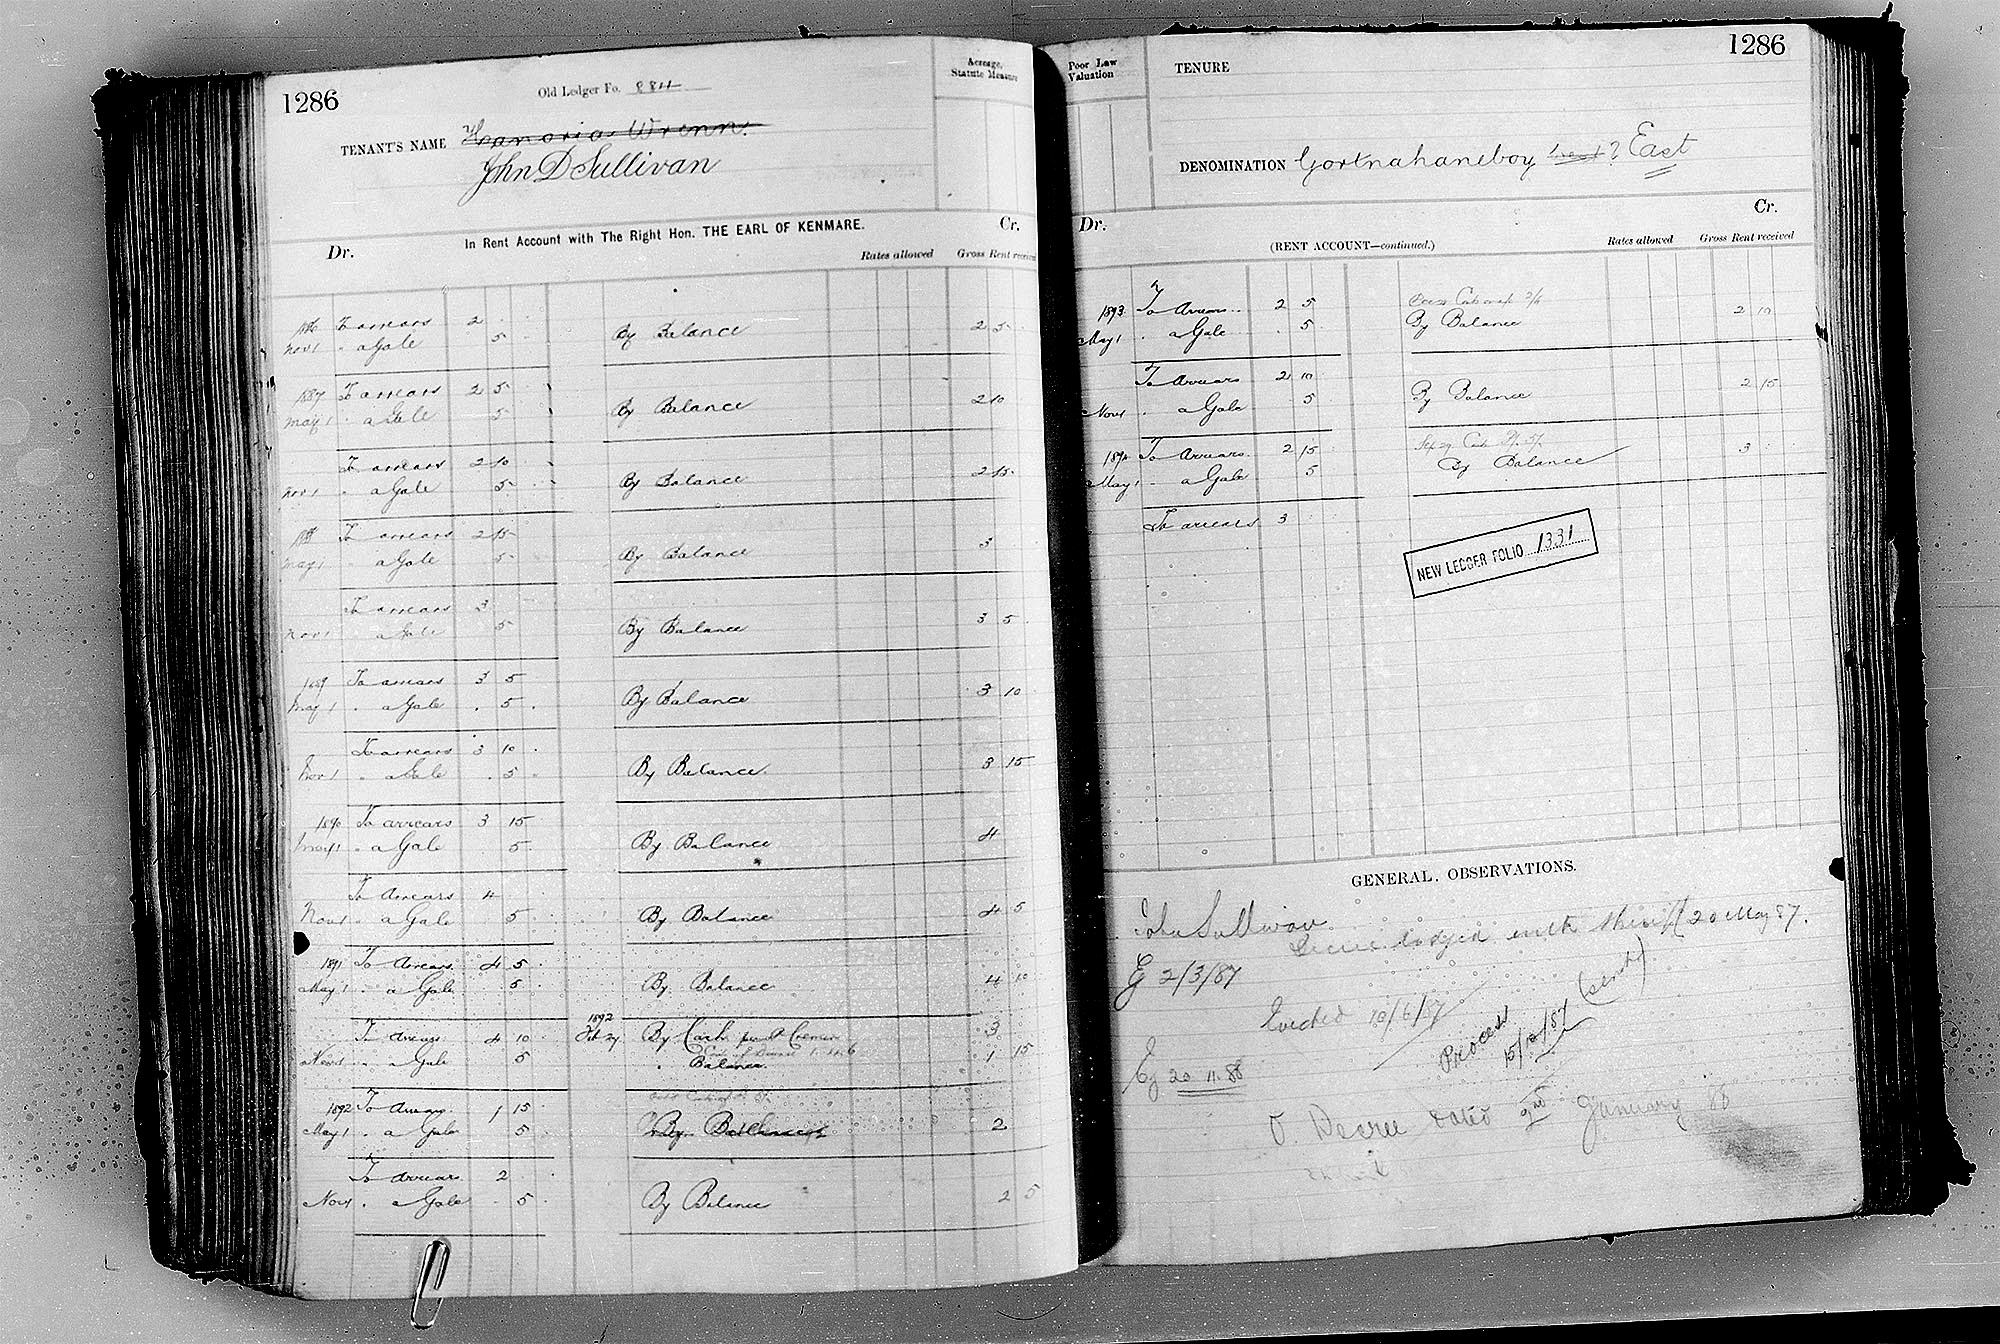 1286
Old Ledger Fo. 884
Acreage, Statute Measure
TENANT'S NAME Hanoria Wrenn.
John D Sullivan
In Rent Account with The Right Hon. THE EARL OF KENMARE.
Dr. Cr.
Rates allowed Gross Rent received
To arrears 2
Nov 1 " a Gale 5 By Balance 2 5
1887 To arrears 2 5
May 1 " a Gale 5 By Balance 2 10
To arrears 2 10
Nov 1 " a Gale 5 By Balance 2 15
To arrears 2 15
May 1 " a Gale 5 By Balance 3
To arrears 3
Nov 1 " a Gale 5 By Balance 3 5
1889 To arrears 3 5
May 1 " a Gale 5 By Balance 3 10
To arrears 3 10
Nov 1 " a Gale 5 By Balance 3 15
1890 To arrears 3 15
May 1 " a Gale 5 By Balance 4
To Arrears 4
Nov 1 " a Gale 5 By Balance 4 5
1891 To Arrears 4 5
May 1 " a Gale 5 By Balance 4 10
1892
To Arrears 4 10 Feb 24 By Cash 3
Nov 1 " a Gale 5 " Balance 1 15
1892 To Arrears 1 15
May 1 " a Gale 5 By Balance 2
To Arrears 2
Nov 1 " a Gale 5 By Balance 2 5
Poor Law Valuation
TENURE
1286
DENOMINATION Gortnahaneboy West ? East
Dr. Cr.
(RENT ACCOUNT—continued.)
Rates allowed Gross Rent received
1893 To Arrears 2 5
May 1 " a Gale 5 By Balance 2 10
To Arrears 2 10
Nov 1 " a Gale 5 By Balance 2 15
1894 To Arrears 2 15
May 1 " a Gale 5 By Balance 3
To arrears 3
NEW LEDGER FOLIO 1331
GENERAL OBSERVATIONS.
John Sullivan
lodged with Sheriff 20 May 87.
Ej 2/3/87
Evicted 10/6/87
Process 15/10/87 (sent)
Ej 20 11.88
O. Decree dated 2nd January 88